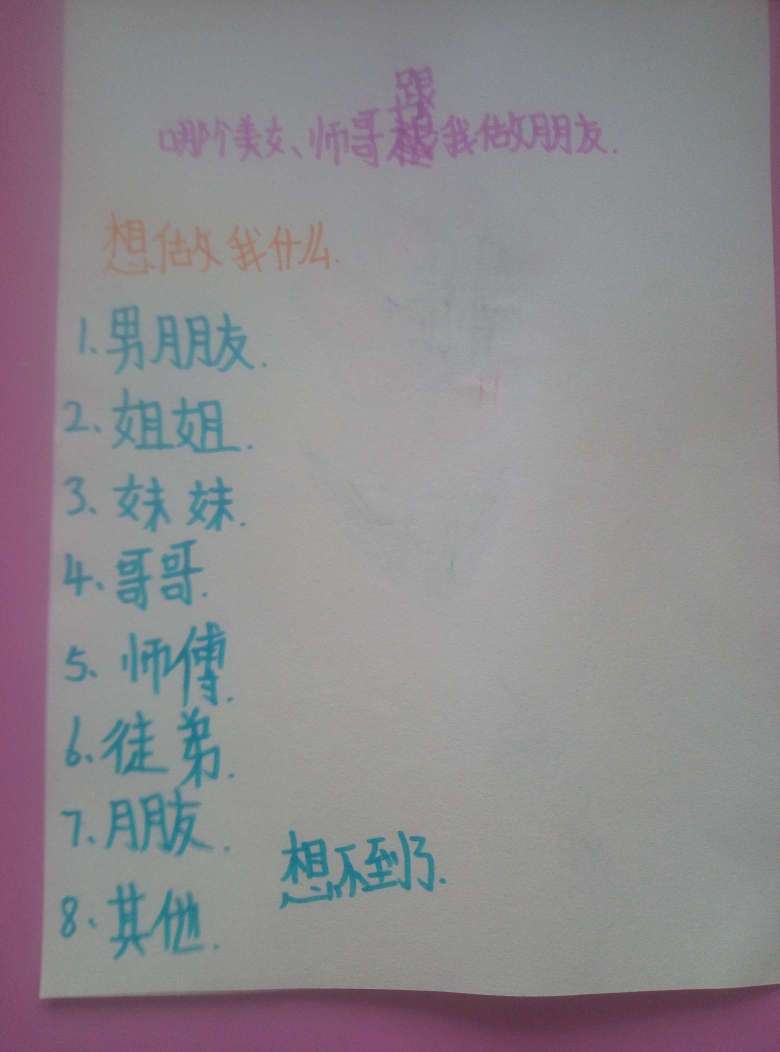 哪个美女、师哥跟我做朋友.
想做我什么.
1.男朋友.
2.姐姐.
3.妹妹.
4、哥哥.
5、师傅.
6.徒弟.
7.朋友.
8、其他.
想不到了.